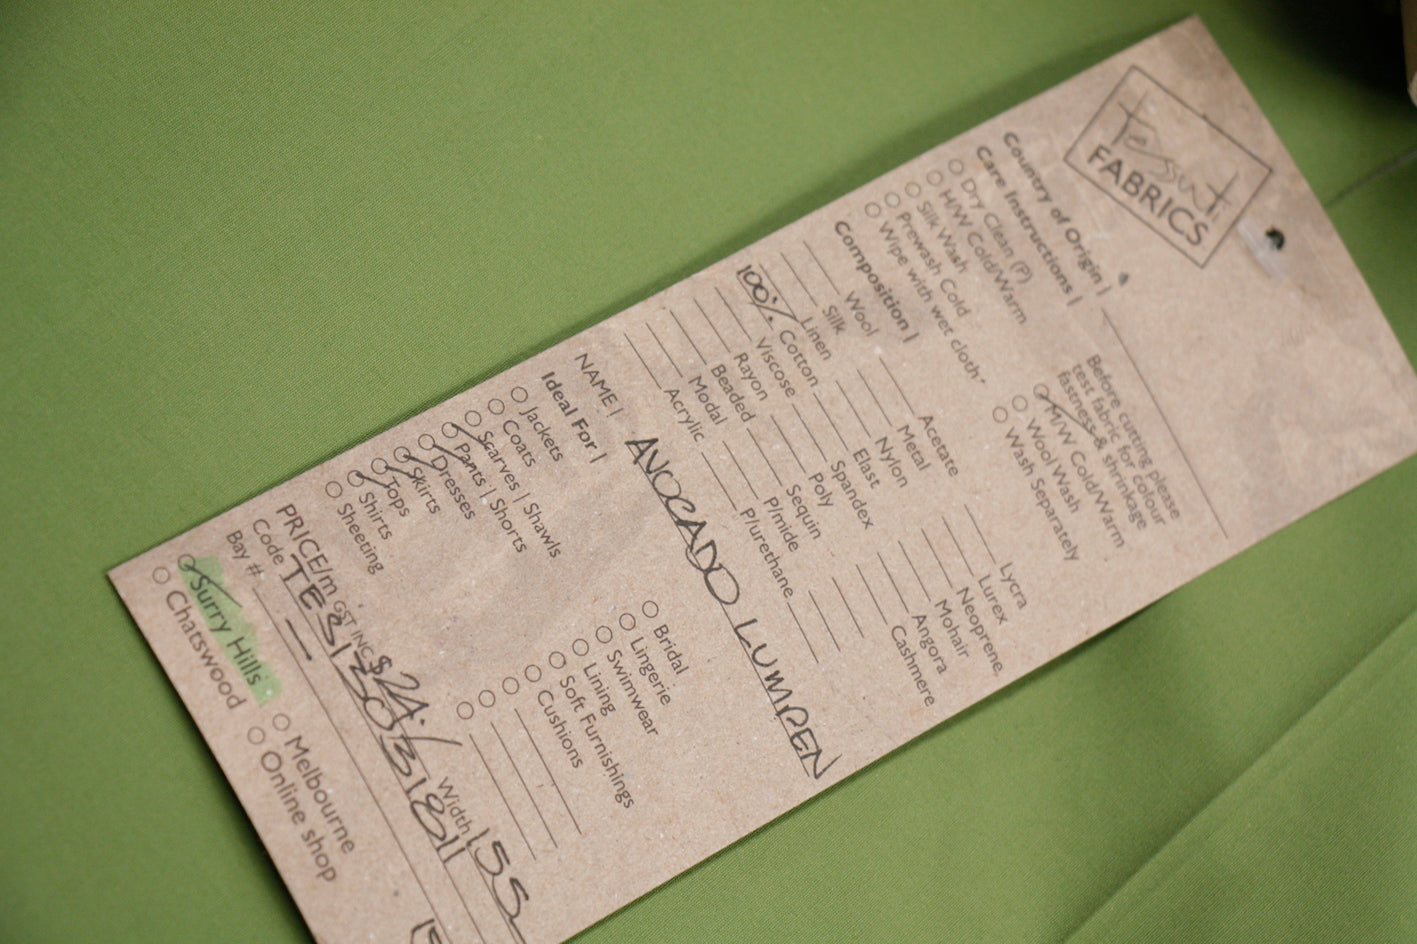 Tessuti
FABRICS
Country of Origin |
Care Instructions |
Dry Clean (P)
H/W Cold/Warm
Silk Wash
Prewash Cold
Wipe with wet cloth
Before cutting please
test fabric for colour
fastness & shrinkage
M/W Cold/Warm
Wool Wash
Wash Separately
Composition |
Wool Acetate Lycra
Silk Metal Lurex
Linen Nylon Neoprene
100% Cotton Elast Mohair
Viscose Spandex Angora
Rayon Poly Cashmere
Beaded Sequin
Modal P/mide
Acrylic P/urethane
NAME | AVOCADO LUMPEN
Ideal For |
Jackets Bridal
Coats Lingerie
Scarves | Shawls Swimwear
Pants | Shorts Lining
Dresses Soft Furnishings
Skirts Cushions
Tops
Shirts
Sheeting
PRICE/m GST INC $24./ Width 155
Code
Bay # —
Surry Hills Melbourne
Chatswood Online shop